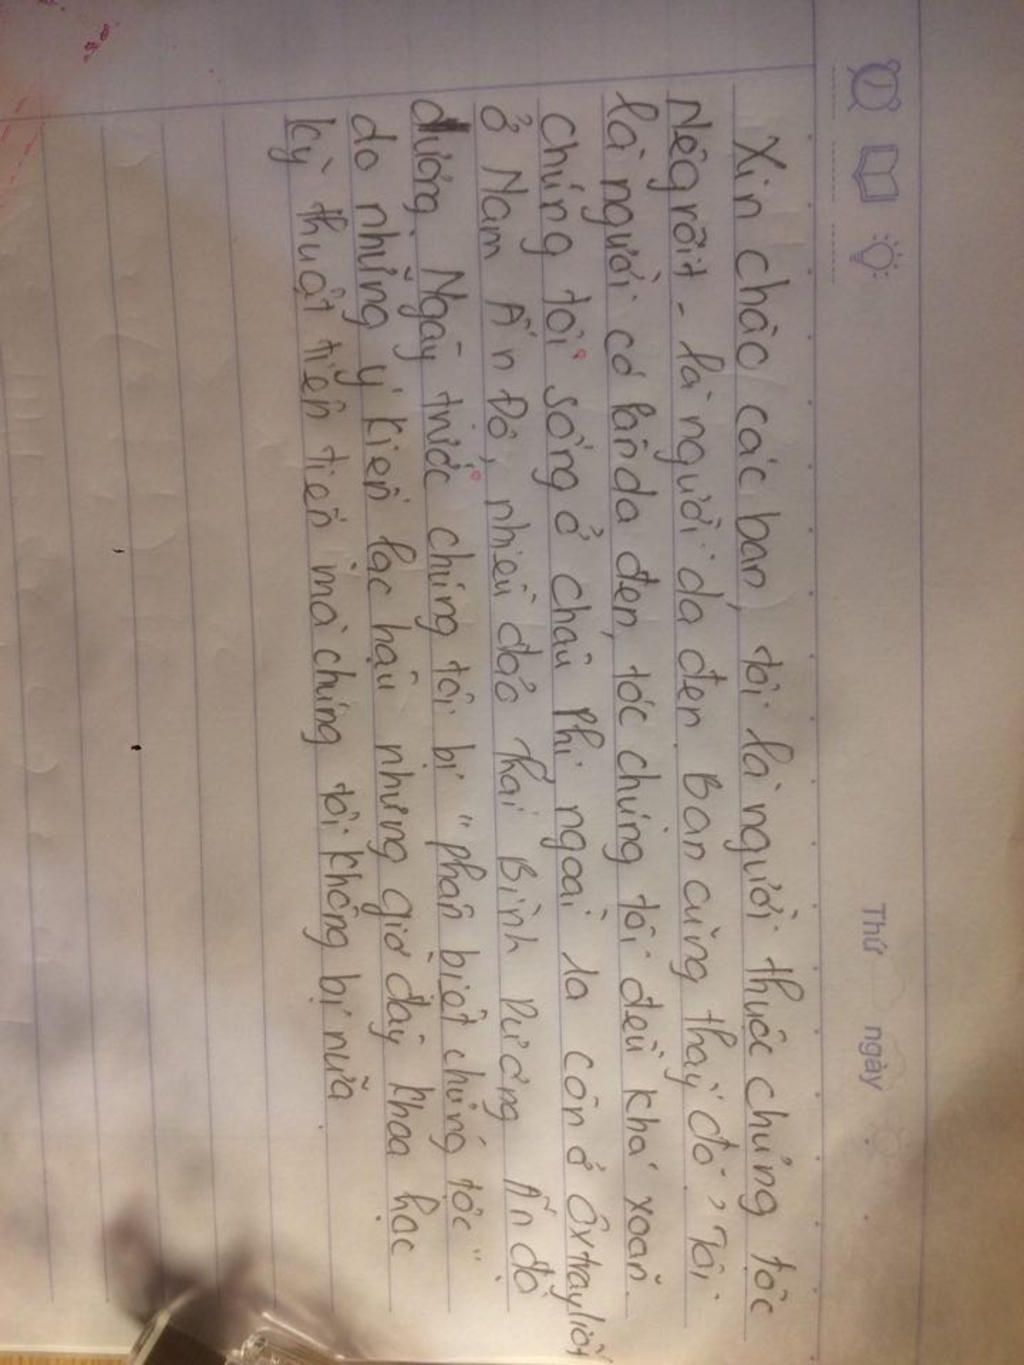 Thứ ngày
Xin chào các bạn, tôi là người thuộc chủng tộc
Nêgrôit - là người da đen. Bạn cũng thấy đó, Tôi
là người có làn da đen, tóc chúng tôi đều khá xoăn.
Chúng tôi sống ở châu Phi ngoài ra còn ở Ôxtraylia
ở Nam Ấn Độ, nhiều đảo thái Bình Dương Ấn độ
dương. Ngày trước chúng tôi bị "phân biệt chủng tộc"
do những ý kiến lạc hậu nhưng giờ đây khoa học
kỹ thuật tiên tiến mà chúng tôi không bị nữa.